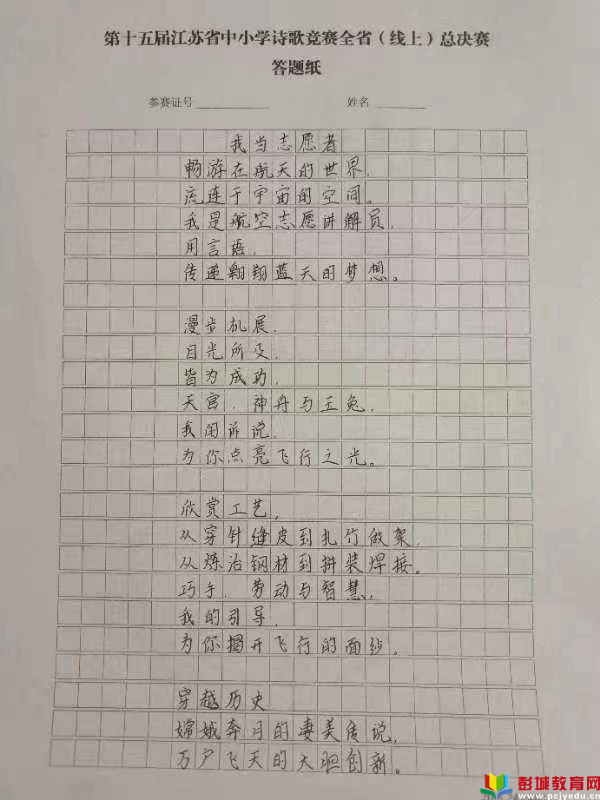 第十五届江苏省中小学诗歌竞赛全省（线上）总决赛
答题纸
参赛证号 姓名
我当志愿者
畅游在航天的世界，
流连于宇宙的空间。
我是航空志愿讲解员，
用言语，
传递翱翔蓝天的梦想。
漫步机展，
目光所及，
皆为成功，
天宫、神舟与玉兔，
我用诉说，
为你点亮飞行之光。
欣赏工艺，
从穿针缝皮到扎竹做架，
从炼冶钢材到拼装焊接。
巧手、劳动与智慧，
我的引导，
为你揭开飞行的面纱。
穿越历史
嫦娥奔月的凄美传说，
万户飞天的大胆创新。
彭城教育网
www.pcjyedu.cn